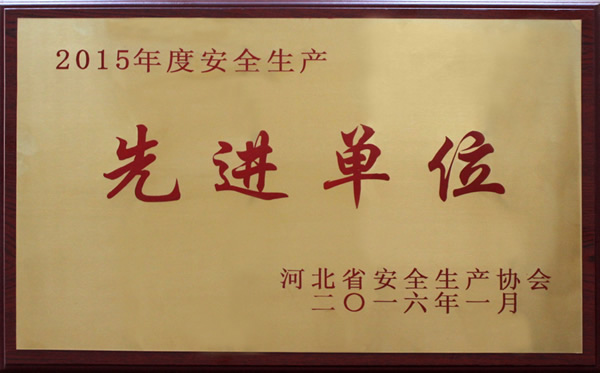 2015年度安全生产
先进单位
河北省安全生产协会
二〇一六年一月